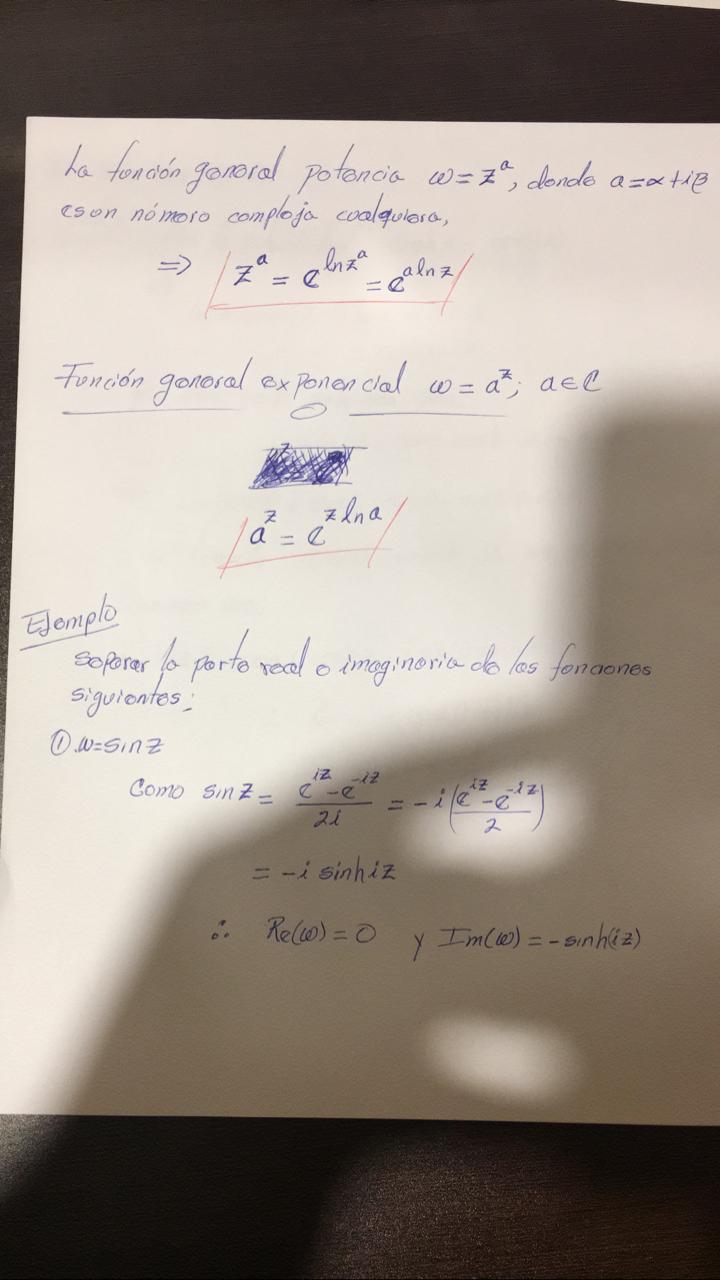 La función general potencia ω = z^a, donde a = α + iβ
es un número compleja cualquiera,
=> z^a = e^{ln z^a} = e^{a ln z}
Función general exponencial ω = a^z; a ∈ ℂ
a^z = e^{z ln a}
Ejemplo
Separar la parte real e imaginaria de las funciones
siguientes:
① ω = sin z
Como sin z = (e^{iz} - e^{-iz})/2i = -i((e^{iz} - e^{-iz})/2)
= -i sinh iz
∴ Re(ω) = 0 y Im(ω) = -sinh(iz)